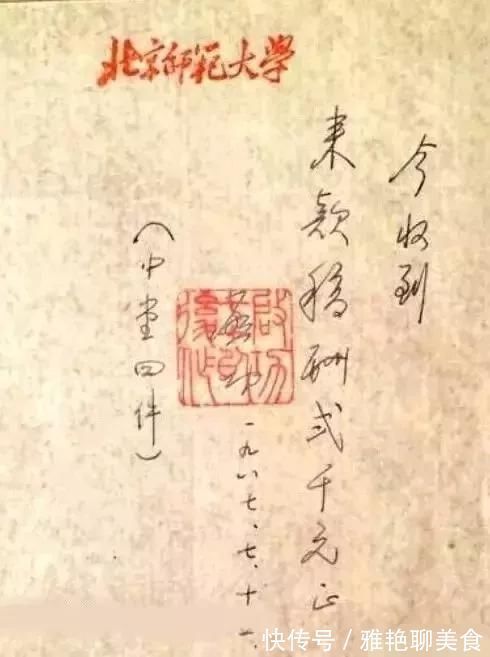 北京師範大學
今收到
来款稿酬弍千元正
啟功
一九八七、七、十一、
（中堂四件）
快传号 / 雅艳聊美食